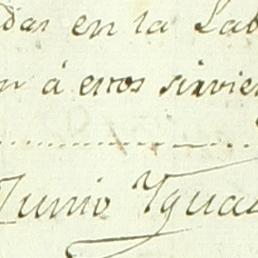 dar en la Lab
n á esos sirvien
Junio Ygual